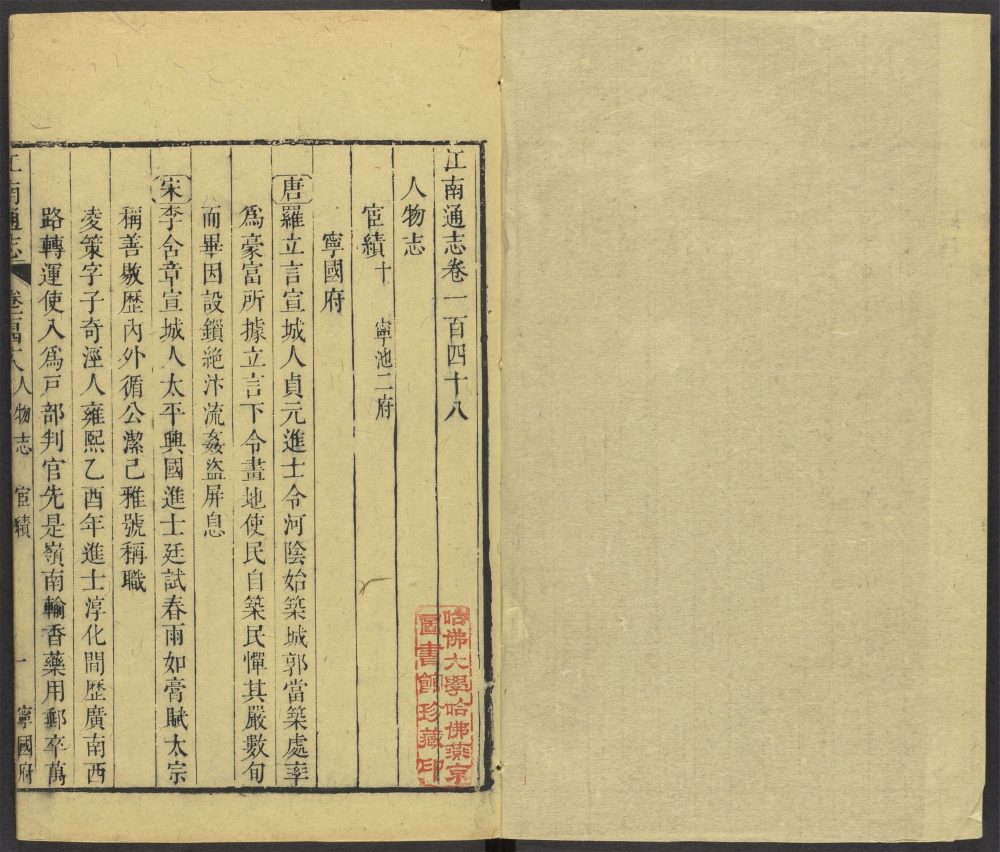 江南通志卷一百四十八
人物志
宦績十 寧池二府
寧國府
唐羅立言宣城人貞元進士令河陰始築城郭當築處率
爲豪富所據立言下令畫地使民自築民憚其嚴數旬
而畢因設鎖絶汴流姦盜屏息
宋李含章宣城人太平興國進士廷試春雨如膏賦太宗
稱善敭歷内外循公潔己雅號稱職
凌策字子奇涇人雍熙乙酉年進士淳化間歷廣南西
路轉運使入爲戸部判官先是嶺南輸香藥用郵卒萬
江南通志 卷一百四十八 人物志 宦績 一 寧國府
哈佛大學哈佛燕京
圖書館珍藏印